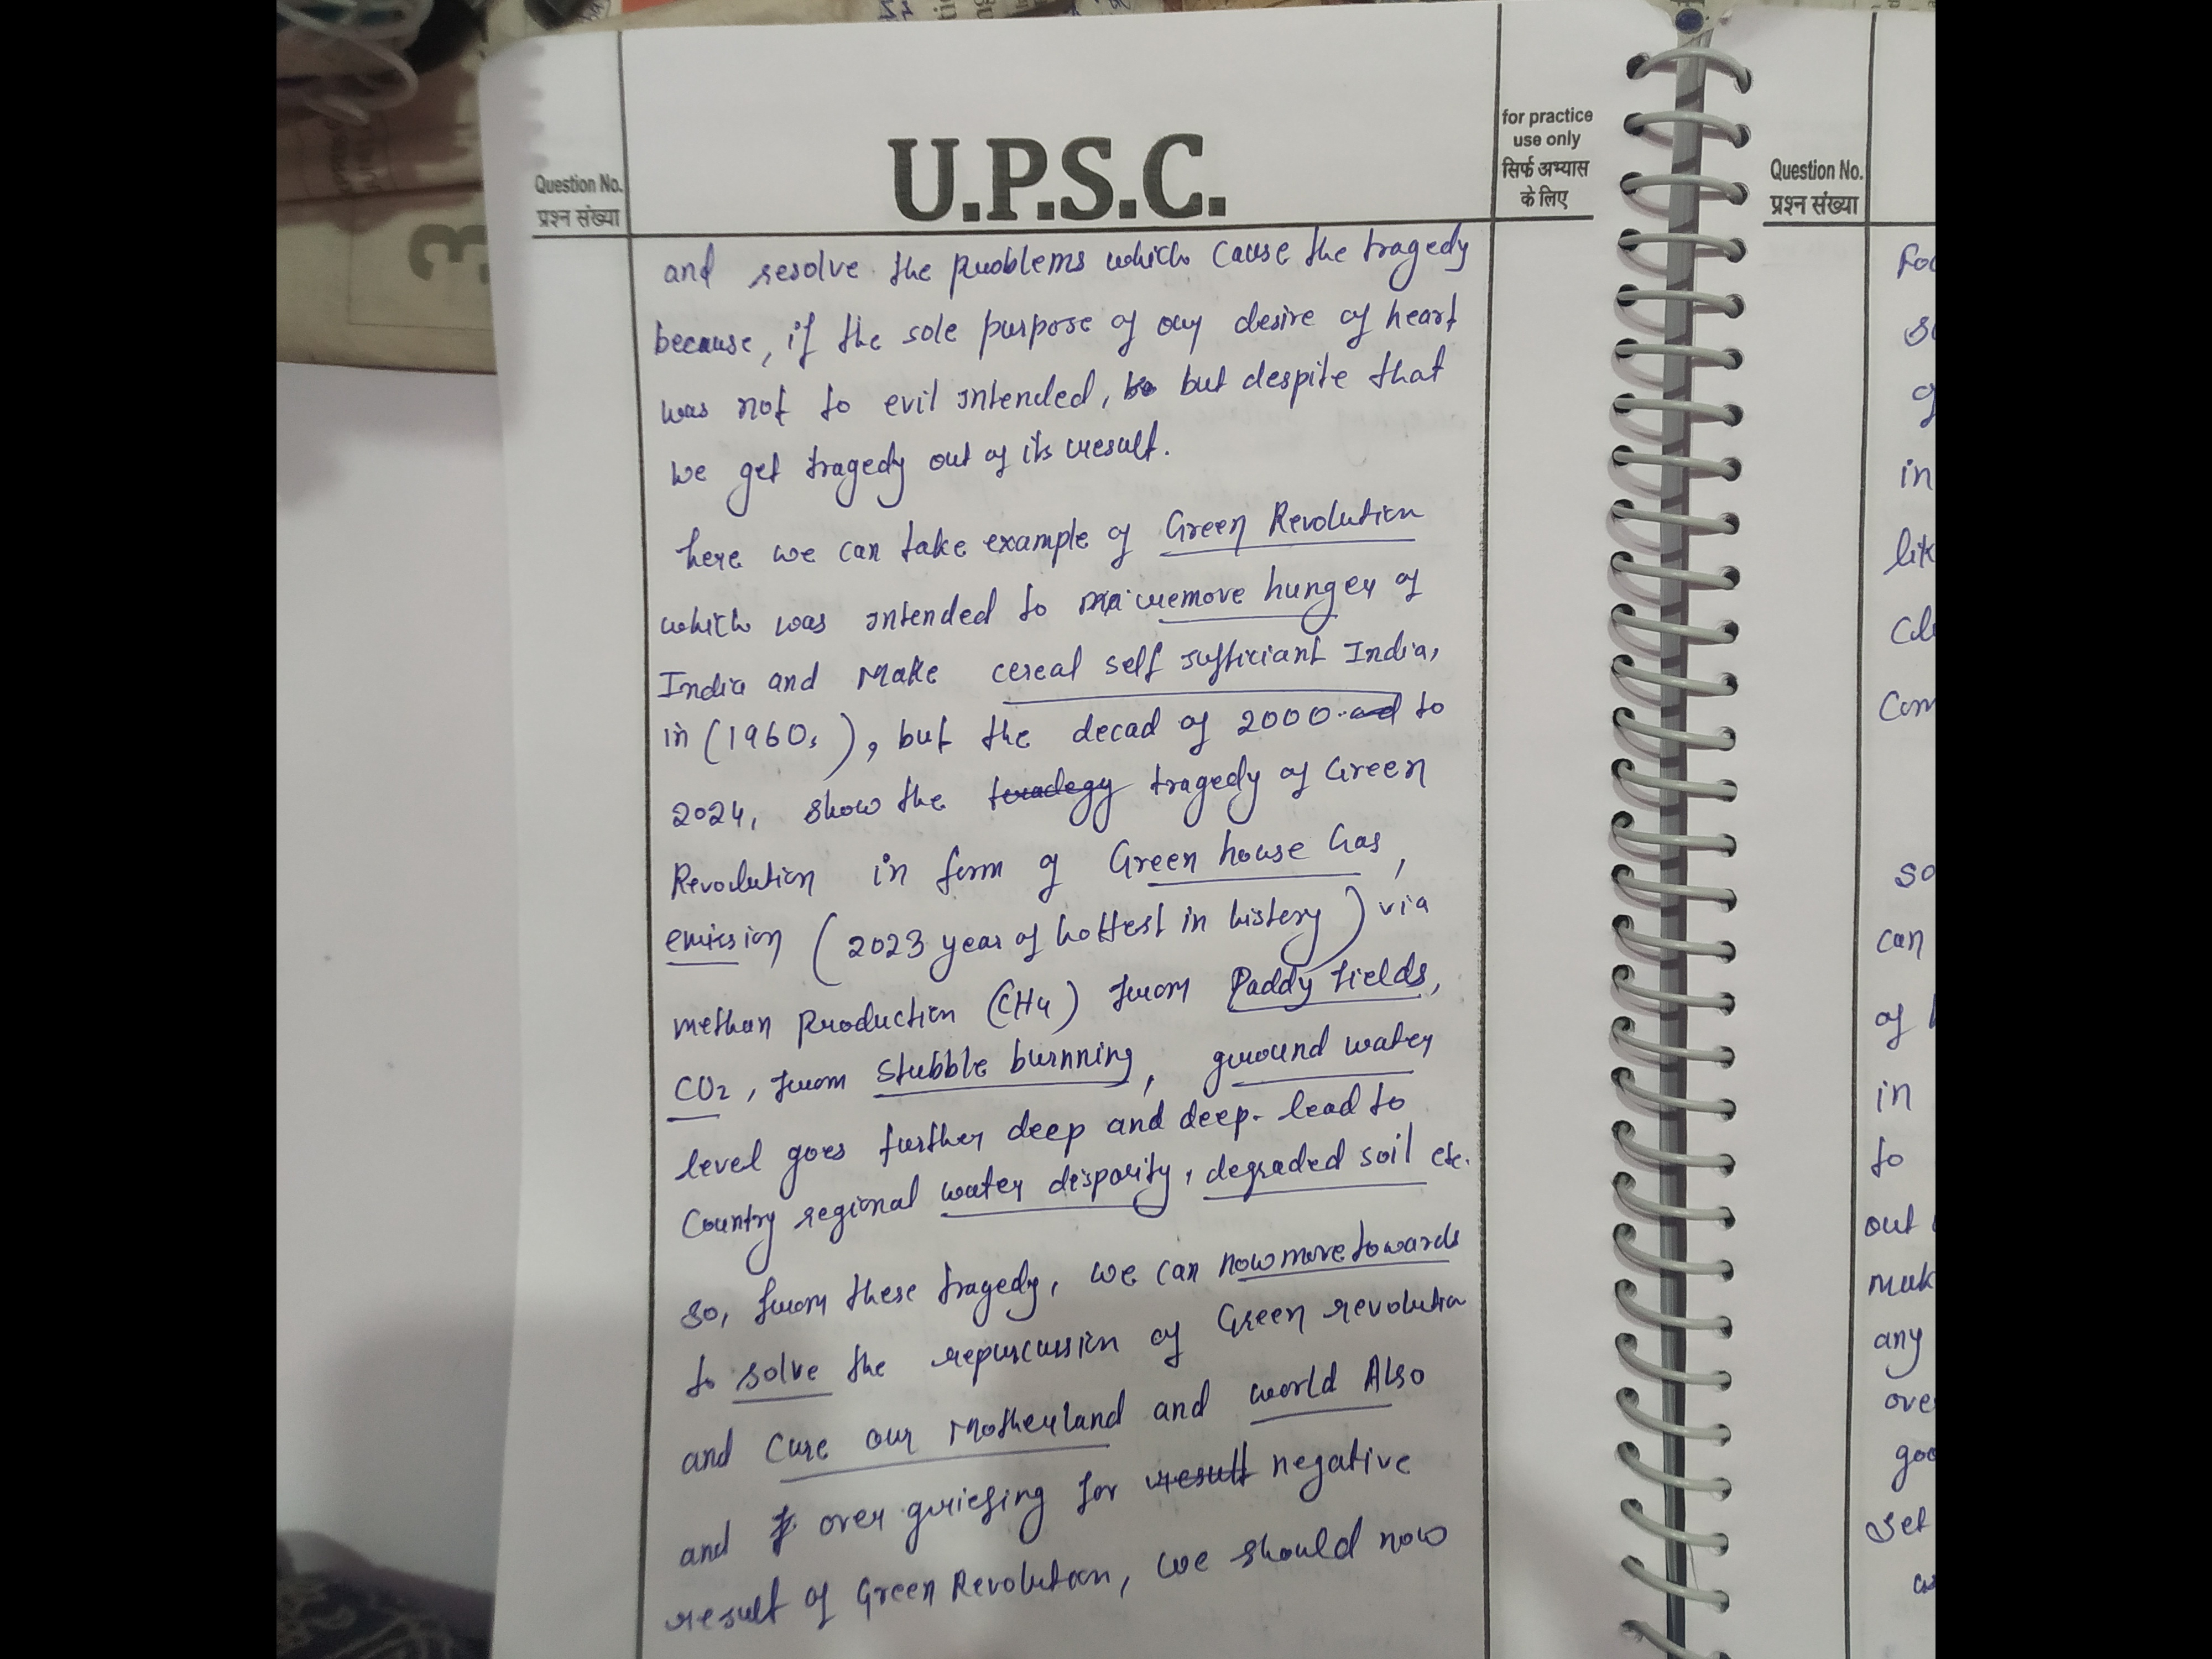 Question No.
प्रश्न संख्या
U.P.S.C.
for practice
use only
सिर्फ अभ्यास
के लिए
and resolve the problems which cause the tragedy
because, if the sole purpose of any desire of heart
was not to evil intended, but despite that
we get tragedy out of its result.
here we can take example of Green Revolution
which was intended to remove hunger of
India and Make cereal self sufficiant India,
in (1960s), but the decad of 2000 to
2024, show the tradegy tragedy of Green
Revolution in form of Green house Gas,
emission (2023 year of hottest in history) via
methan Production (CH4) from Paddy fields,
CO2, from stubble burnning, ground water
level goes further deep and deep. lead to
Country regional water disparity, degraded soil etc.
so, from these tragedy, we can now move towards
to solve the repurcussion of Green revolution
and Cure our Motherland and world Also
and over griefing for result negative
result of Green Revolution, we should now
Question No.
प्रश्न संख्या
in
can
in
to
out
any